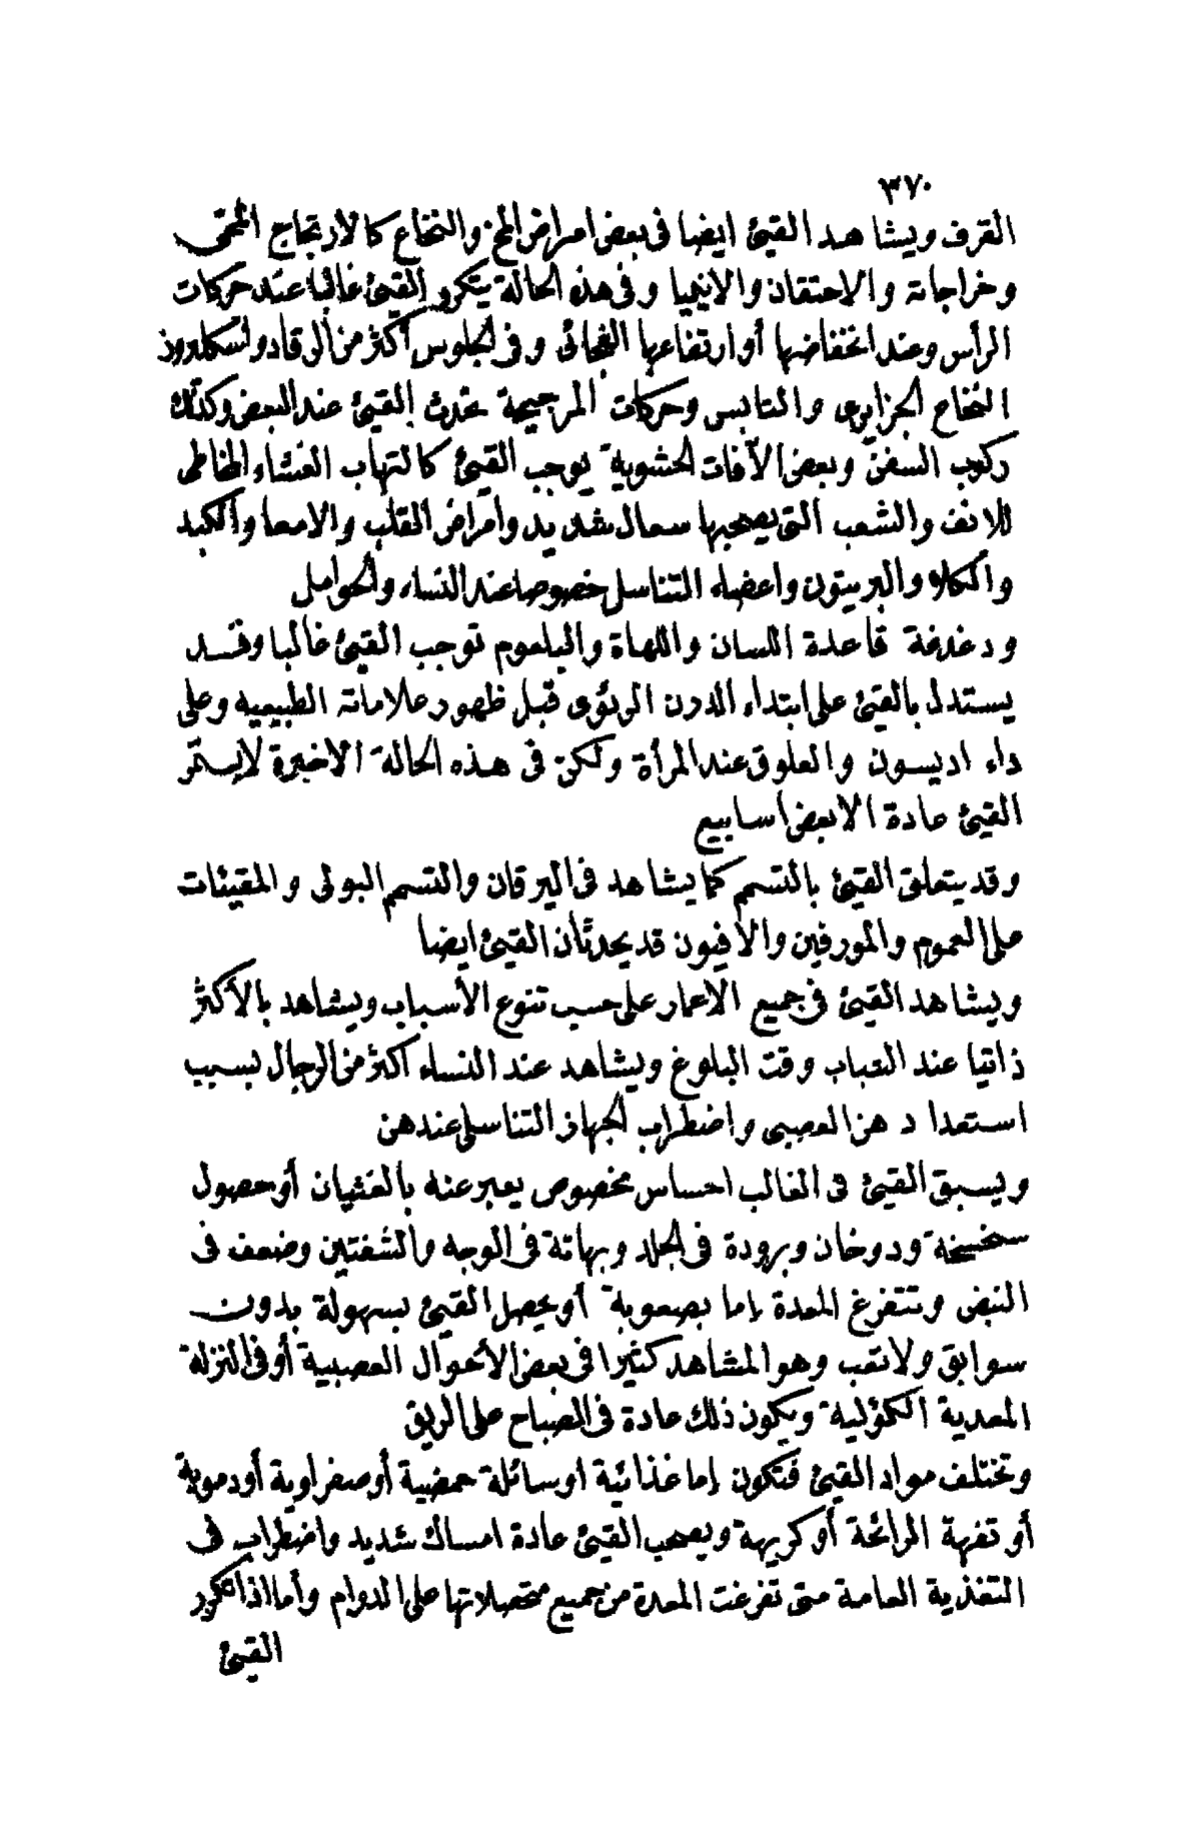 ٣٧٠
القرف ويشاهد القيئ ايضا فى بعض امراض المخ والنخاع كالارتجاج المخى
وخراجاته والاحتقان والانيميا وفى هذه الحالة يتكرر القيئ غالبا عند حركات
الرأس وعند انخفاضها أو ارتفاعها الفجائى وفى الجلوس أكثر من الرقاد واسكليروز
النخاع الجزايرى والتابس وحركات المرجيحة تحدث القيئ عند البعض وكذلك
ركوب السفن وبعض الآفات الحشوية يوجب القيئ كالتهاب الغشاء المخاطى
للانف والشعب التى يصحبها سعال شديد وامراض القلب والامعا والكبد
والكلا والبريتون واعضاء التناسل خصوصا عند النساء والحوامل
ودغدغة قاعدة اللسان واللهاة والبلعوم توجب القيئ غالبا وقد
يستدل بالقيئ على ابتداء الدرن الرئوى قبل ظهور علاماته الطبيعيه وعلى
داء اديسون والعلوق عند المرأة ولكن فى هذه الحالة الاخيرة لايستمر
القيئ عادة الا بعض اسابيع
وقد يتعلق القيئ بالتسمم كما يشاهد فى اليرقان والتسمم البولى والمقيئات
على العموم والمورفين والافيون قد يحدثان القيئ ايضا
ويشاهد القيئ فى جميع الاعمار على حسب تنوع الأسباب ويشاهد بالأكثر
ذاتيا عند الشباب وقت البلوغ ويشاهد عند النساء اكثر من الرجال بسبب
استعداد هن العصبى واضطراب الجهاز التناسلى عندهن
ويسبق القيئ فى الغالب احساس مخصوص يعبر عنه بالغثيان أو حصول
سخسخة ودوخان وبرودة فى الجلد وبهاتة فى الوجه والشفتين وضعف فى
النبض وتتفرغ المعدة إما بصعوبة أو يحصل القيئ بسهولة بدون
سوابق ولا تعب وهو المشاهد كثيرا فى بعض الأحوال العصبية أو فى النزلة
المعدية الكؤلية ويكون ذلك عادة فى الصباح على الريق
وتختلف مواد القيئ فتكون إما غذائية اوسائلة حمضية أو صفراوية أو دموية
أو تفهة الرائحة أو كريهة ويصحب القيئ عادة امساك شديد واضطراب فى
التغذية العامة متى تفرغت المعدة من جميع متحصلاتها على الدوام وأما اذا تكرر
القيئ